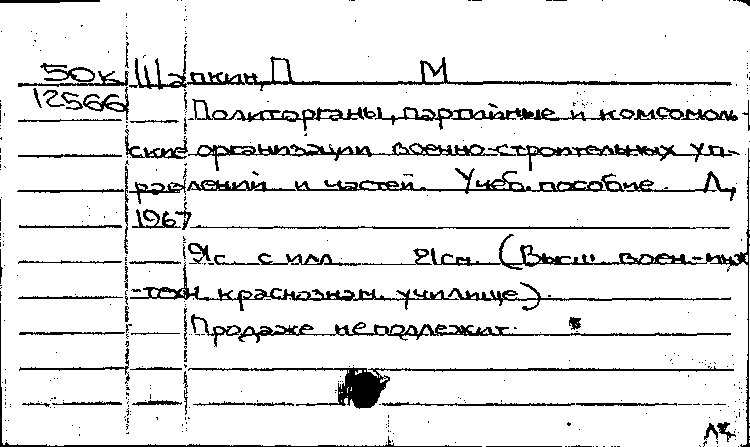 50к Шапкин, П М
12566 Политорганы, партийные и комсомоль-
ские организации военно-строительных уп-
равлений и частей. Учеб. пособие. Л.,
1967
91с. с илл. 21см. (Высш. воен.-инж
-техн. краснознам. училище).
Продаже не подлежит.